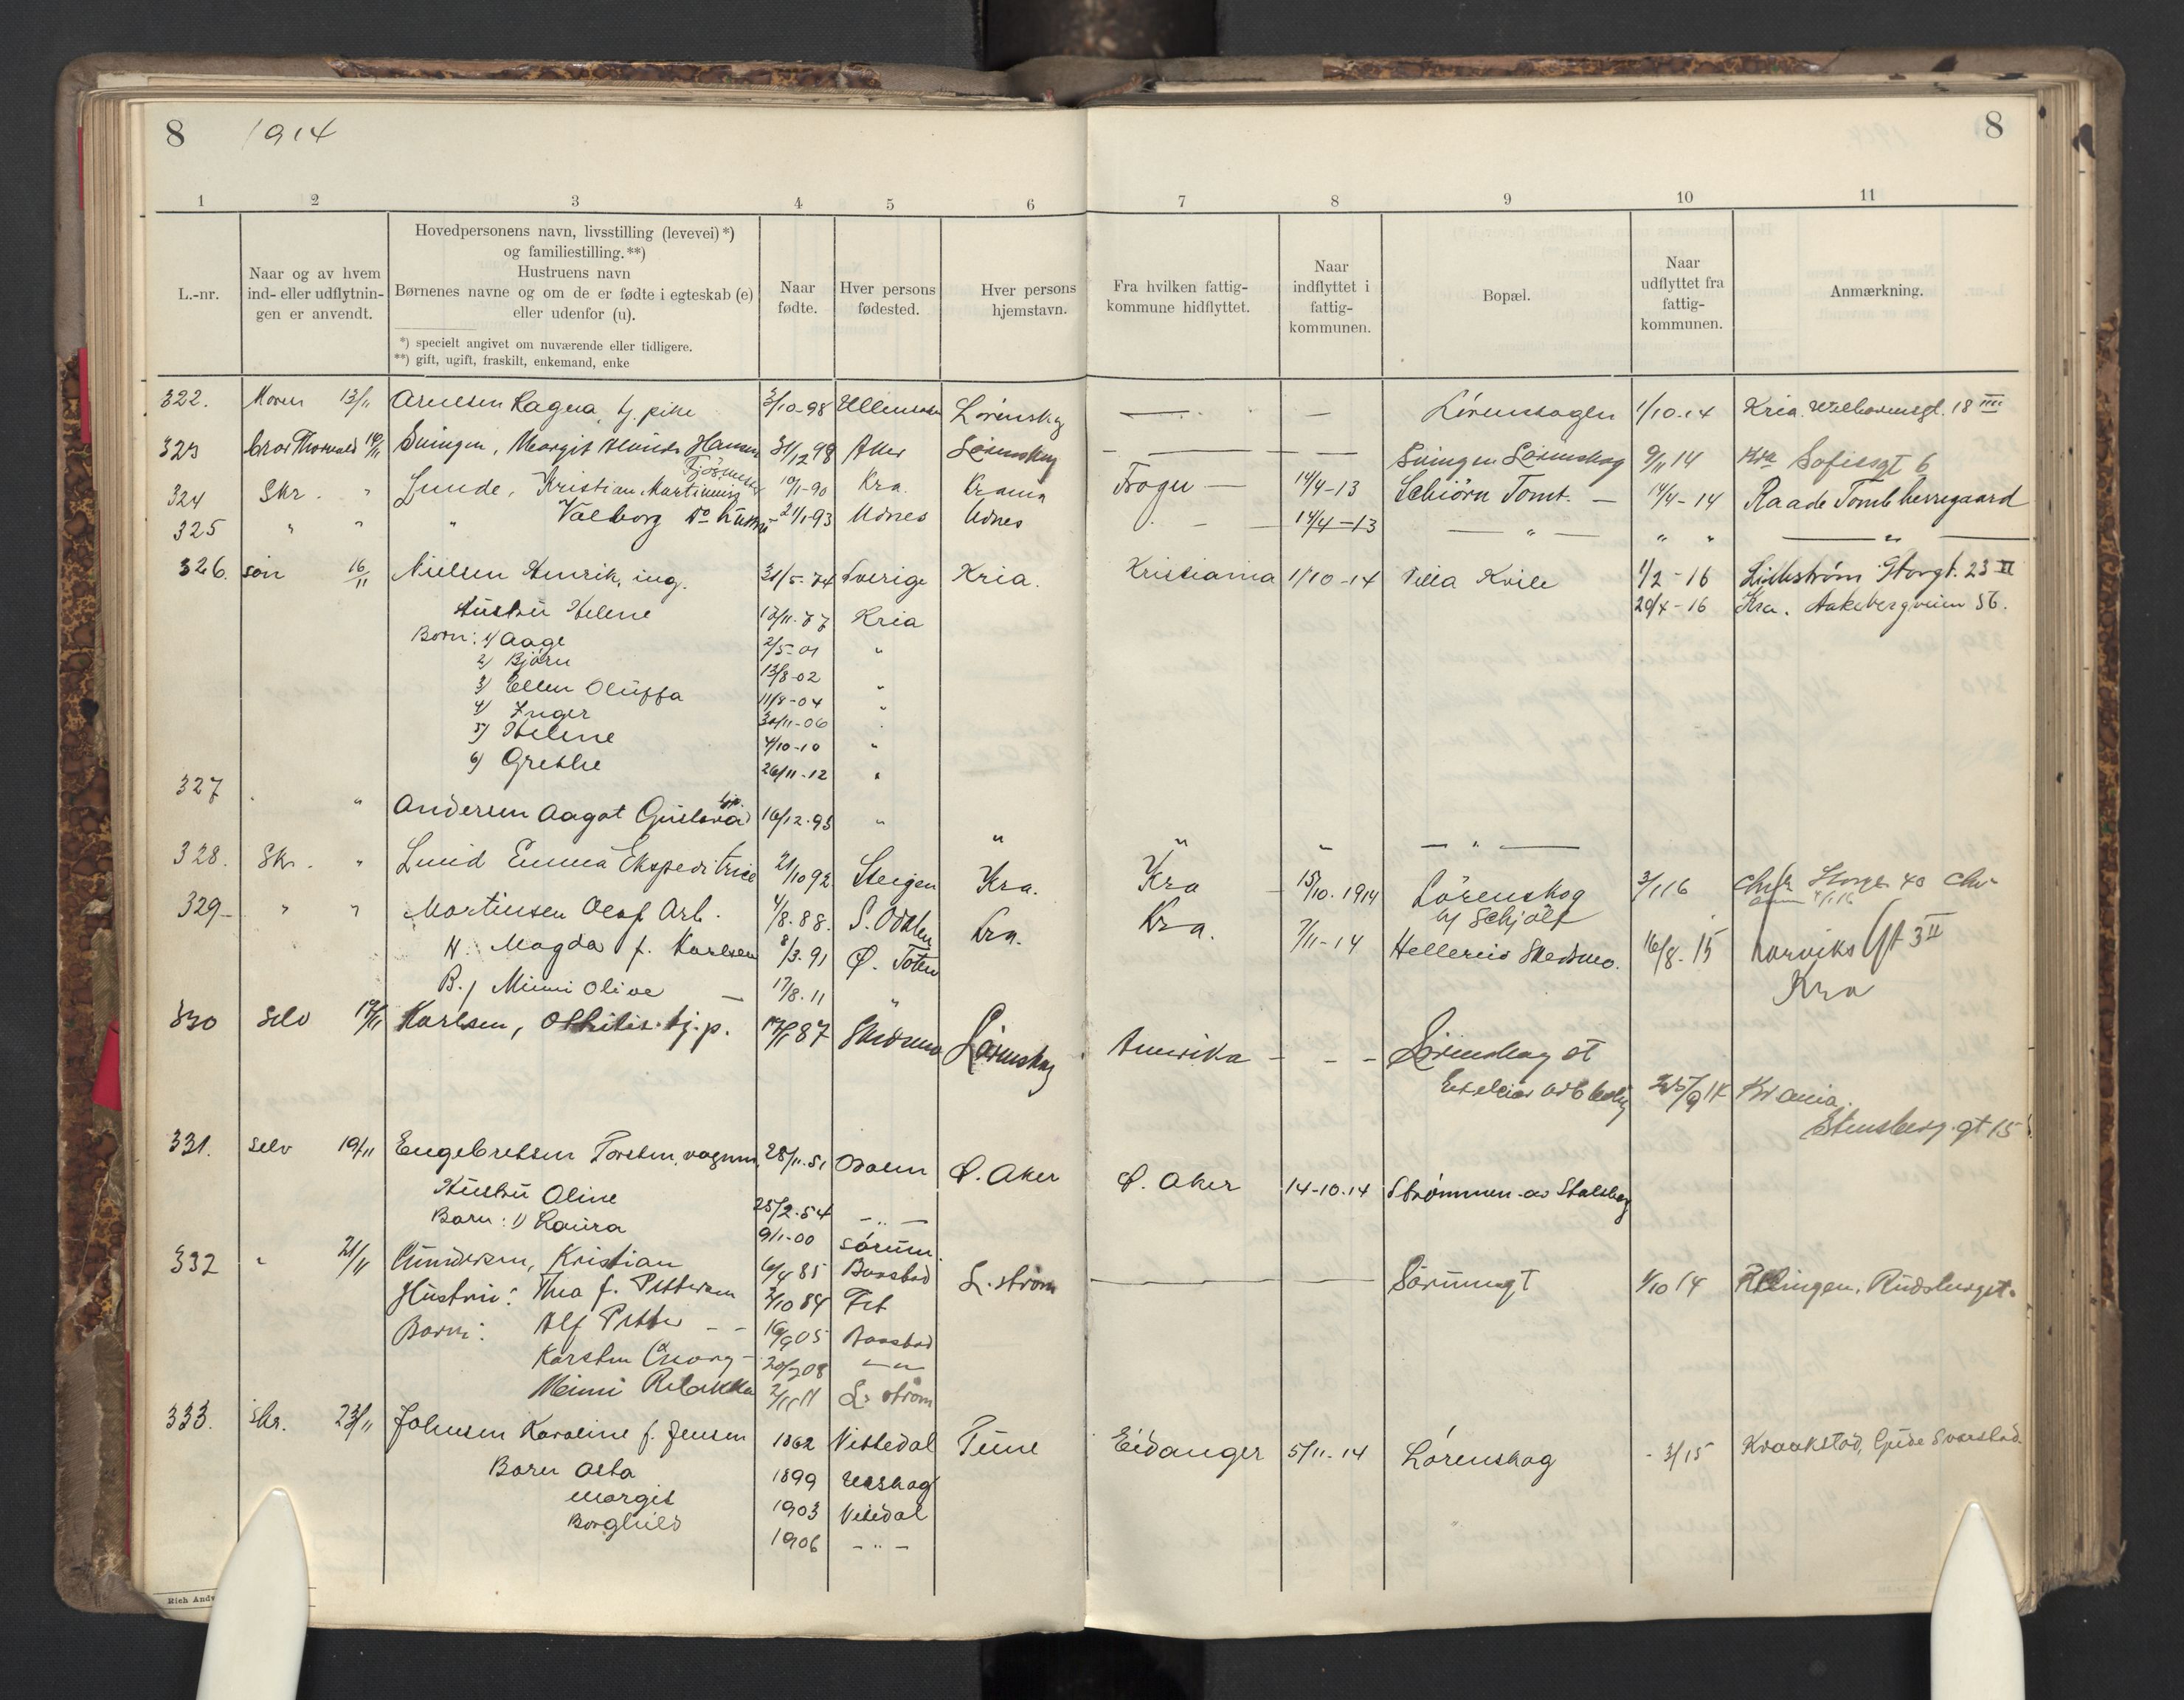 8 1914 8
1 2 3 4 5 6 7 8 9 10 11
L.-nr.
Naar og av hvem
ind- eller udflytnin-
gen er anvendt.
Hovedpersonens navn, livsstilling (levevei) *)
og familiestilling. **)
Hustruens navn
Børnenes navne og om de er fødte i egteskab (e)
eller udenfor (u).
*) specielt angivet om nuværende eller tidligere.
**) gift, ugift, fraskilt, enkemand, enke
Naar
fødte.
Hver persons
fødested.
Hver persons
hjemstavn.
Fra hvilken fattig-
kommune hidflyttet.
Naar
indflyttet i
fattig-
kommunen.
Bopæl.
Naar
udflyttet fra
fattig-
kommunen.
Anmærkning.
322. Moren 13/11 Arnesen Ragna, tj. pike 3/10-98 Lørenskog — — Lørenskogen 1/10.14 Kria. 18 IIII
323 Thorvald 14/11 Margit Hansen 31/12 98 Aker Lørenskog — — Lørenskog 9/11 14 Kra Sofiesgt 6
324 Skr. " Lunde, Kristian 10/1-90 Kra. Krania Frogn — 14/4-13 Tomt. — 14/4-14 Raade Tomb herregaard
325 " " " Valborg do hustru 21/1-93 Udnes Udnes — 14/4-13 — " — " " — " —
326. søn 16/11 Nielsen Henrik, ing. 31/5-74 Sverige Kria. Kristiania 1/10-14 Villa Kvile 1/2-16 Lillestrøm Storgt. 23 II
Hustru Helene 17/11.77 Kria 20/4-16 Kra. Aakebergveien 56.
Børn: 1) Aage 2/5-01 "
2) Bjørn 13/8-02
3) Ellen Oluffa 11/8-04 "
4) Inger 30/11-06 "
5) Helene 4/10-10 "
6) Grethe 26/11-12 "
327 . " Andersen Aagot Gustava tjp. 16/12.95 " " " " — " —
328. Skr. " Lund Emma Ekspeditrice 21/10 92 Steigen Kra. Kra 15/10.1914 Lørenskog 3/1 16
329 " " Martinsen Olaf Arb. 4/8.88. S. Odalen Kra. Kra. 7/11-14 16/8.15 Narviksgt 3 II
H. Magda f. Karlsen 8/3.91 Ø. Toten Kra
B. 1 Mimi Olive — 17/8.11 "
330 Selv 17/11 Karlsen, tj.p. 87 Skedsmo Lørenskog Amerika - - - Lørenskog st
Krania.
Stensberg.gt 15
331. selv 19/11 Engebretsen Torsten, vognm. 28/11.51 Odalen Ø. Aker Ø. Aker 14-10.14 Strømmen
Hustru Oline 25/2.54 — " —
Barn: 1) Laura 9/1-00 Sørum.
332 " 21/11 Gundersen, Kristian 6/4 85 Baastad L. strøm — — Sørumsgt 1/10 14 Rælingen, Rudsberget.
Hustru: Thea f. Pettersen 2/10 84 Fet
Barn: Alf Petter — 16/9 05 Baastad
Karsten Georg — 20/7 08 — " —
Mimi Rebekka 2/11 11 L. strøm
333. skr. 23/11 Johnsen Karoline f. Jensen 1862 Nittedal Tune Eidanger 5/11-14 Lørenskog - 3/15 Kraakstad,
Børn Asta 1899 Urskog
Margit 1903 Nitedal
Borghild 1906 — " —